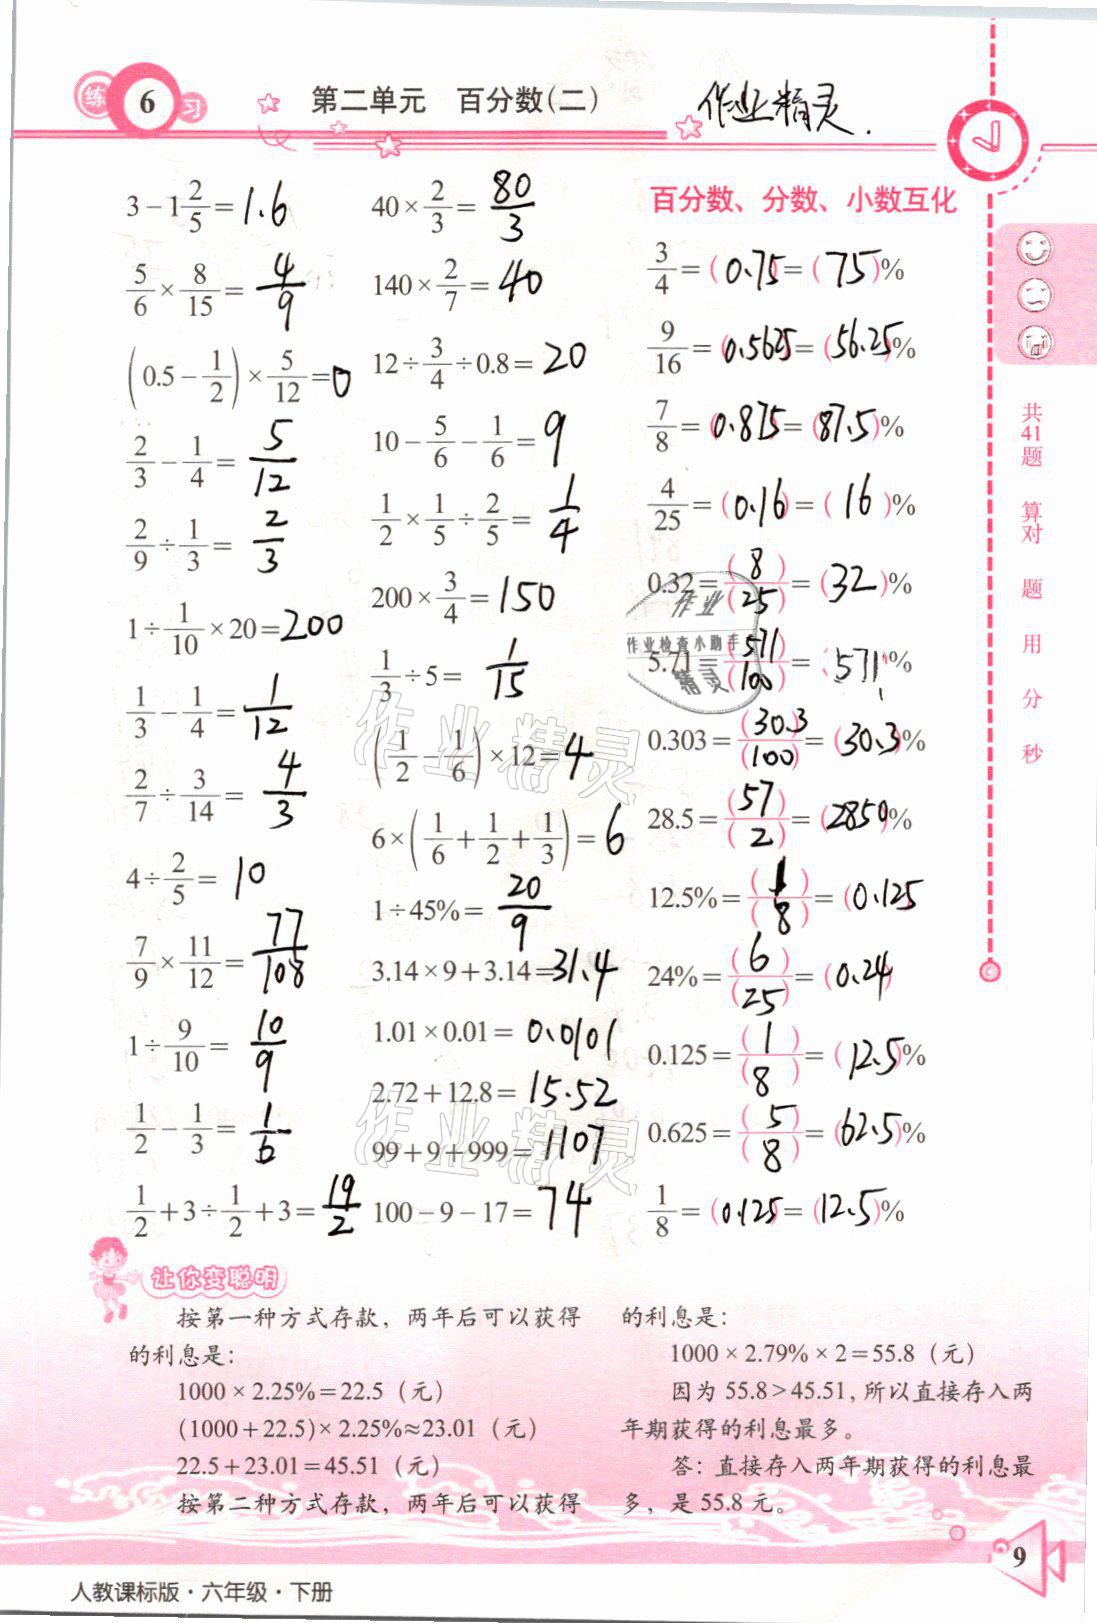 练 6 习
第二单元 百分数(二)
作业精灵.
3-1 2/5=1.6
5/6×8/15=4/9
(0.5-1/2)×5/12=0
2/3-1/4=5/12
2/9÷1/3=2/3
1÷1/10×20=200
1/3-1/4=1/12
2/7÷3/14=4/3
4÷2/5=10
7/9×11/12=77/108
1÷9/10=10/9
1/2-1/3=1/6
1/2+3÷1/2+3=19/2
40×2/3=80/3
140×2/7=40
12÷3/4÷0.8=20
10-5/6-1/6=9
1/2×1/5÷2/5=1/4
200×3/4=150
1/3÷5=1/15
(1/2-1/6)×12=4
6×(1/6+1/2+1/3)=6
1÷45%=20/9
3.14×9+3.14=31.4
1.01×0.01=0.0101
2.72+12.8=15.52
99+9+999=1107
100-9-17=74
百分数、分数、小数互化
3/4=(0.75)=(75)%
9/16=(0.5625)=(56.25)%
7/8=(0.875)=(87.5)%
4/25=(0.16)=(16)%
0.32=(8)/(25)=(32)%
5.71=(571)/(100)=(571)%
0.303=(30.3)/(100)=(30.3)%
28.5=(57)/(2)=(2850)%
12.5%=(1)/(8)=(0.125
24%=(6)/(25)=(0.24)
0.125=(1)/(8)=(12.5)%
0.625=(5)/(8)=(62.5)%
1/8=(0.125)=(12.5)%
作业
作业检查小助手
精灵
作业精灵
作业精灵
共41题 算对 题 用 分 秒
让你变聪明
按第一种方式存款，两年后可以获得
的利息是：
1000×2.25%=22.5（元）
(1000+22.5)×2.25%≈23.01（元）
22.5+23.01=45.51（元）
按第二种方式存款，两年后可以获得
的利息是：
1000×2.79%×2=55.8（元）
因为55.8>45.51，所以直接存入两
年期获得的利息最多。
答：直接存入两年期获得的利息最
多，是55.8元。
9
人教课标版·六年级·下册